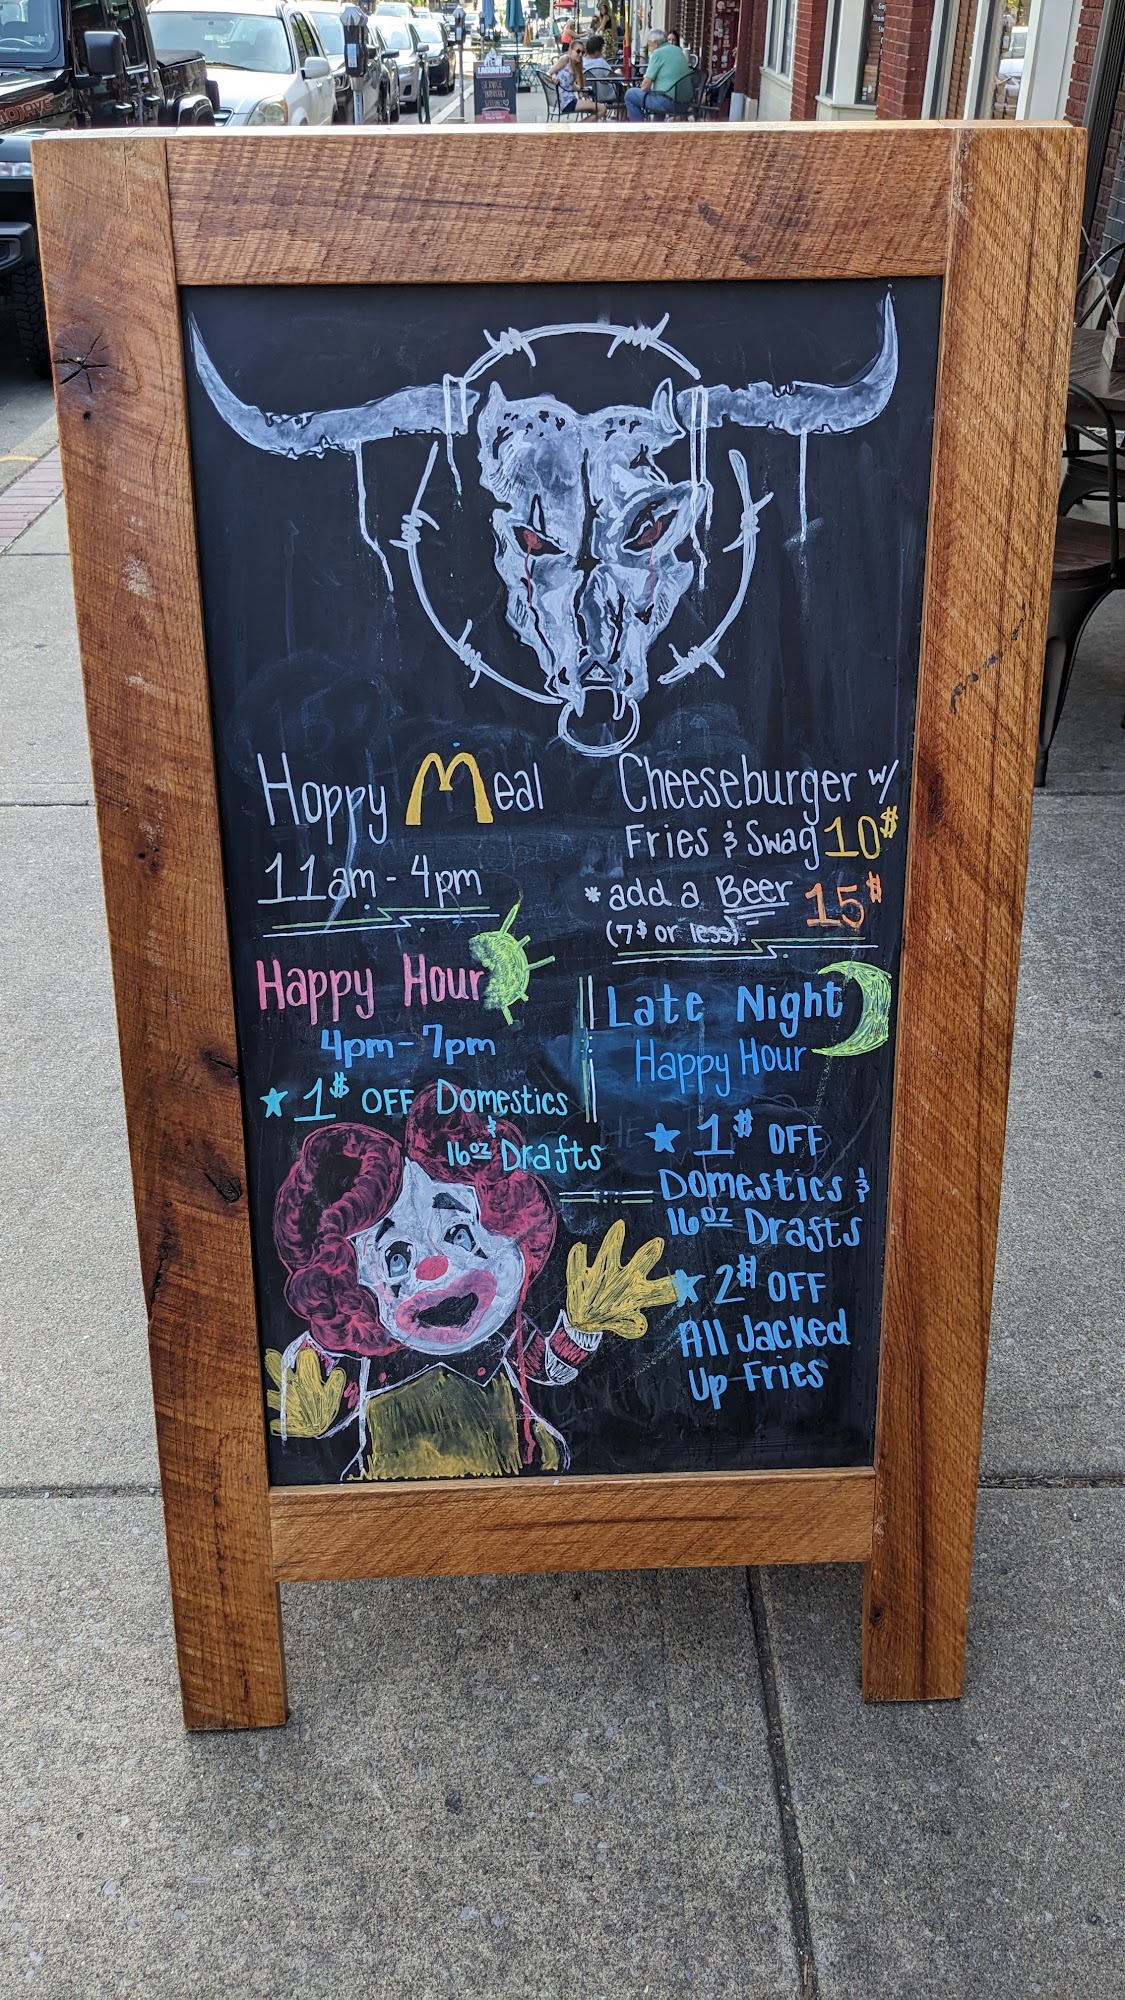 Hoppy Meal
11am - 4pm
Cheeseburger w/
Fries & Swag 10$
* add a Beer 15$
(7$ or less).
Happy Hour
4pm - 7pm
★ 1$ OFF Domestics
&
16oz Drafts
Late Night
Happy Hour
★ 1$ OFF
Domestics &
16oz Drafts
★ 2$ OFF
All Jacked
Up Fries
LAGUNITAS